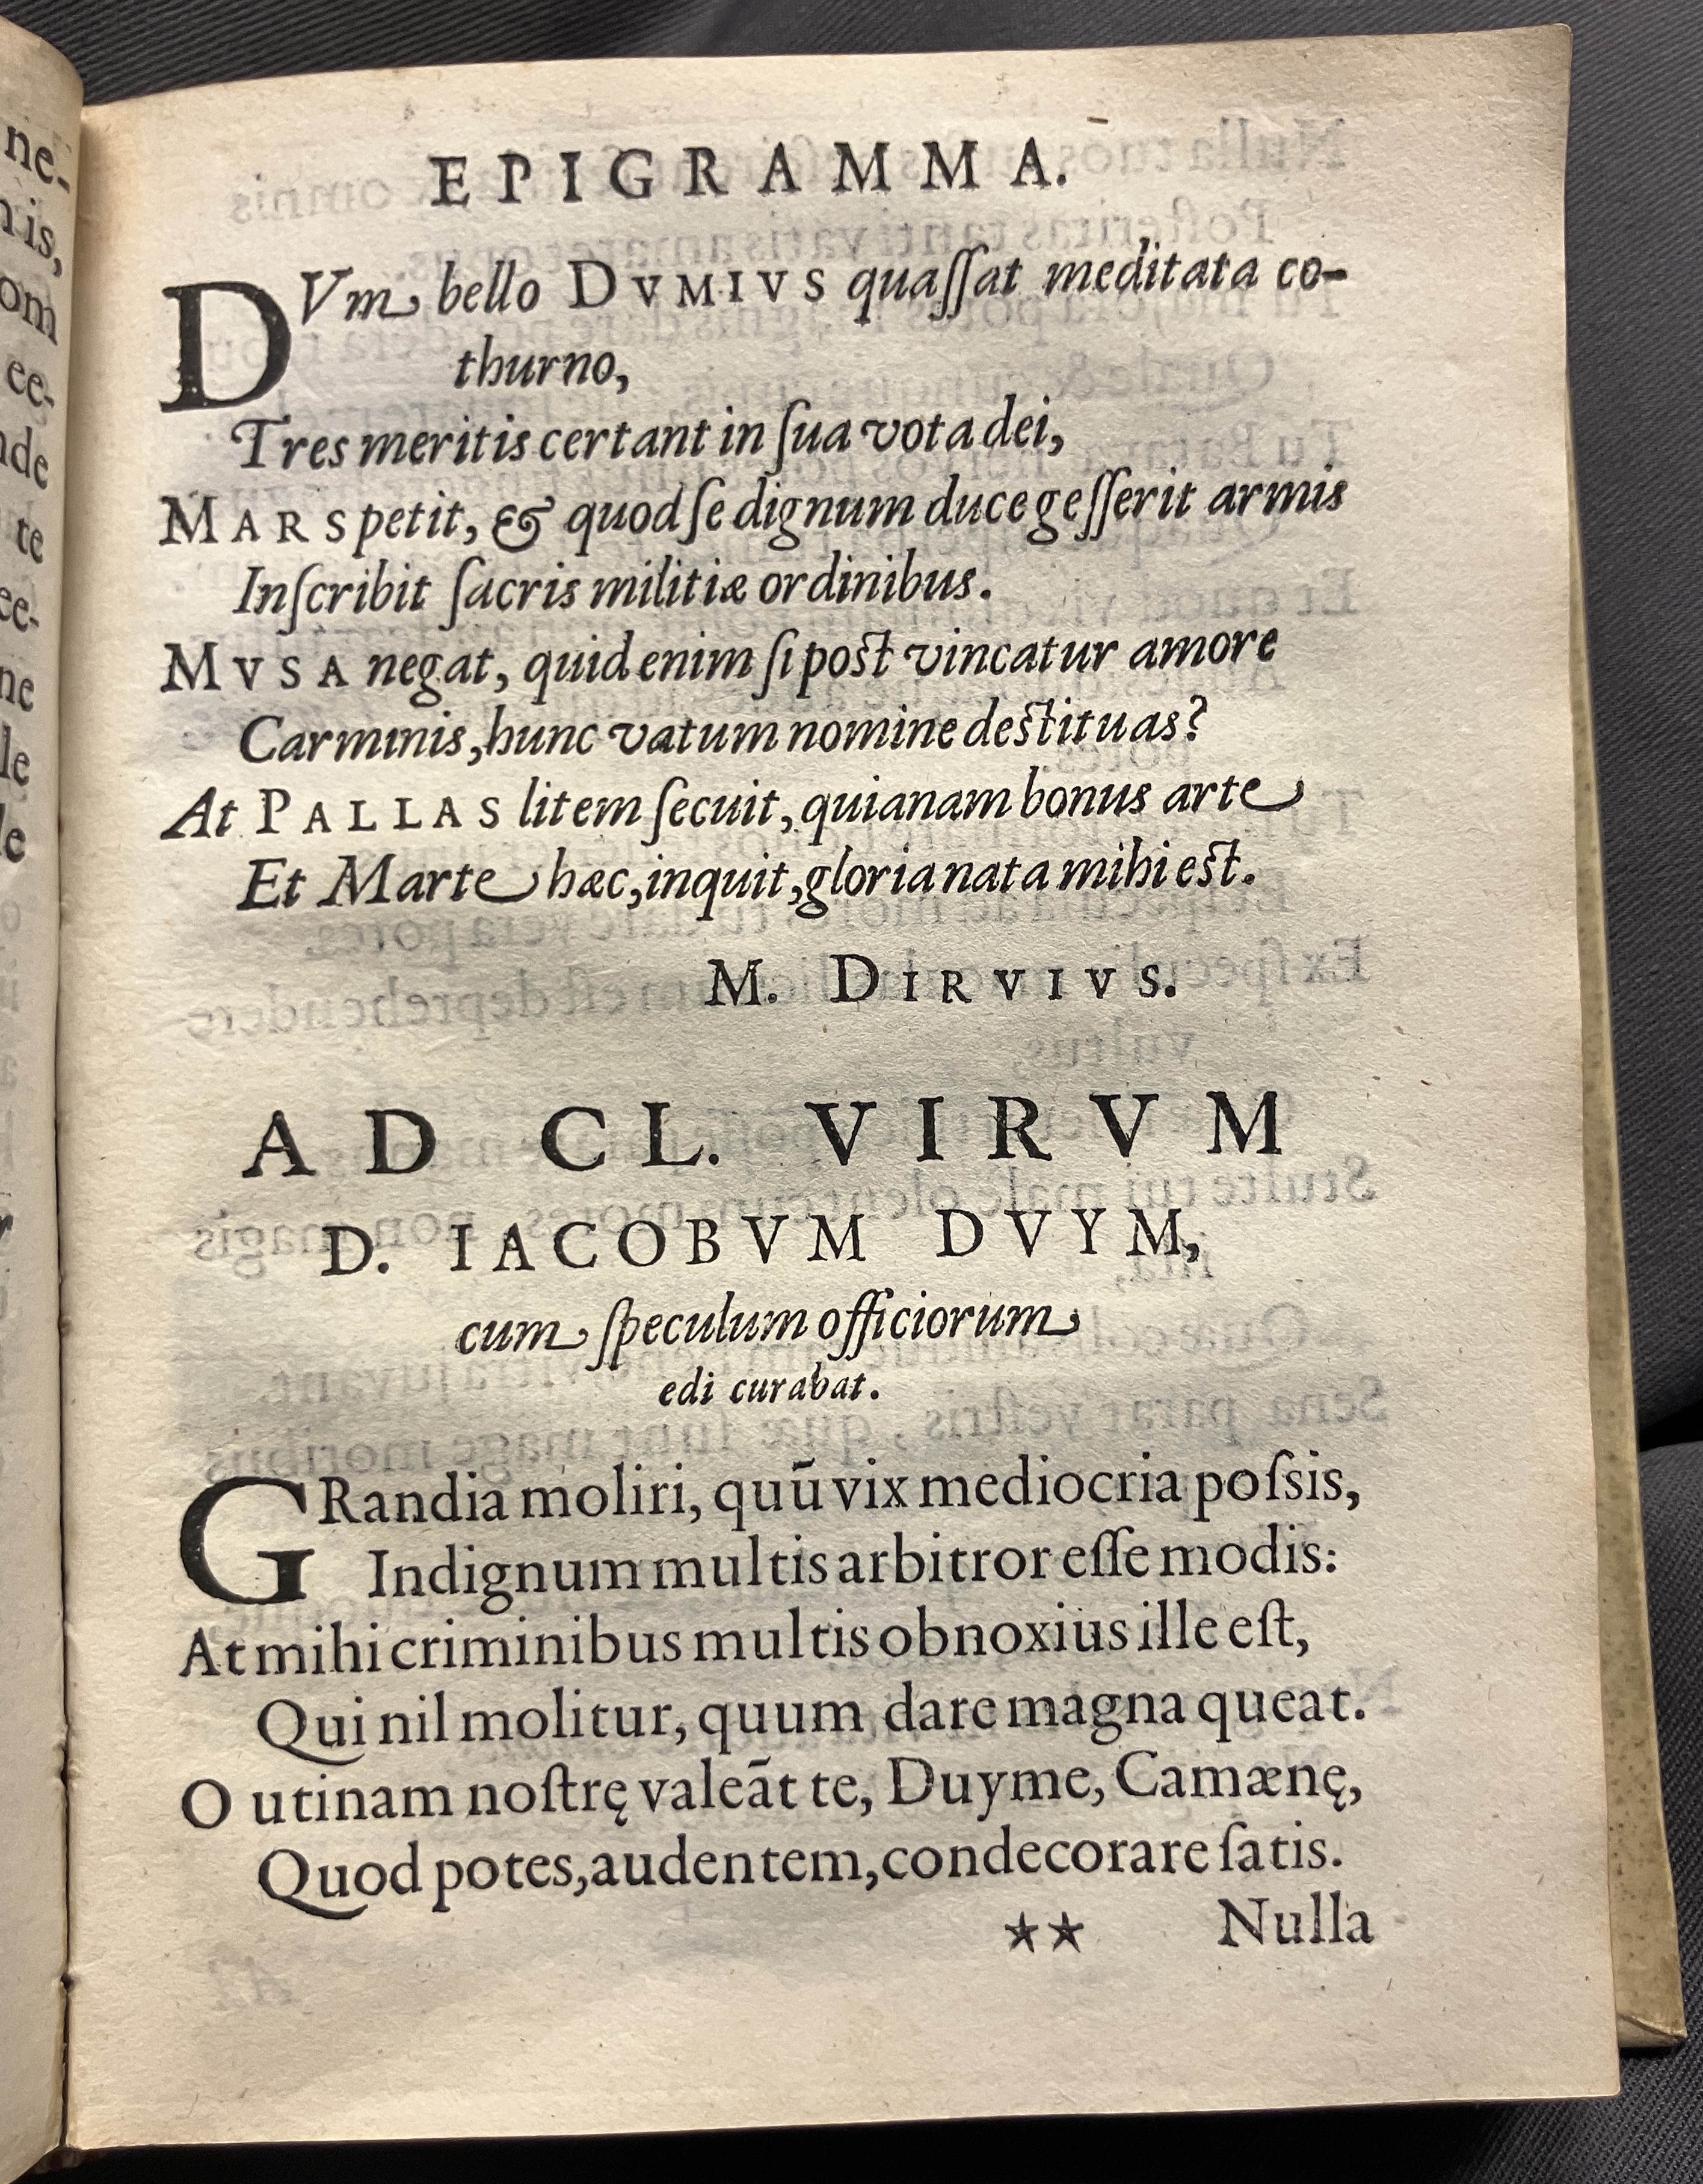 EPIGRAMMA.
DVm bello DVMIVS quaſſat meditata co-
thurno,
Tres meritis certant in ſua vota dei,
MARS petit, & quod ſe dignum duce geſſerit armis
Inſcribit ſacris militiæ ordinibus.
MVSA negat, quid enim ſi post vincatur amore
Carminis, hunc vatum nomine destituas?
At PALLAS litem ſecuit, quianam bonus arte
Et Marte hæc, inquit, gloria nata mihi est.
M. DIRVIVS.
AD CL. VIRVM
D. IACOBVM DVYM,
cum ſpeculum officiorum
edi curabat.
GRandia moliri, quū vix mediocria poſsis,
Indignum multis arbitror eſſe modis:
At mihi criminibus multis obnoxius ille eſt,
Qui nil molitur, quum dare magna queat.
O utinam noſtrę valeāt te, Duyme, Camænę,
Quod potes, audentem, condecorare ſatis.
** Nulla
ne-
is,
om
ee-
de
te
ee-
ne
le
le